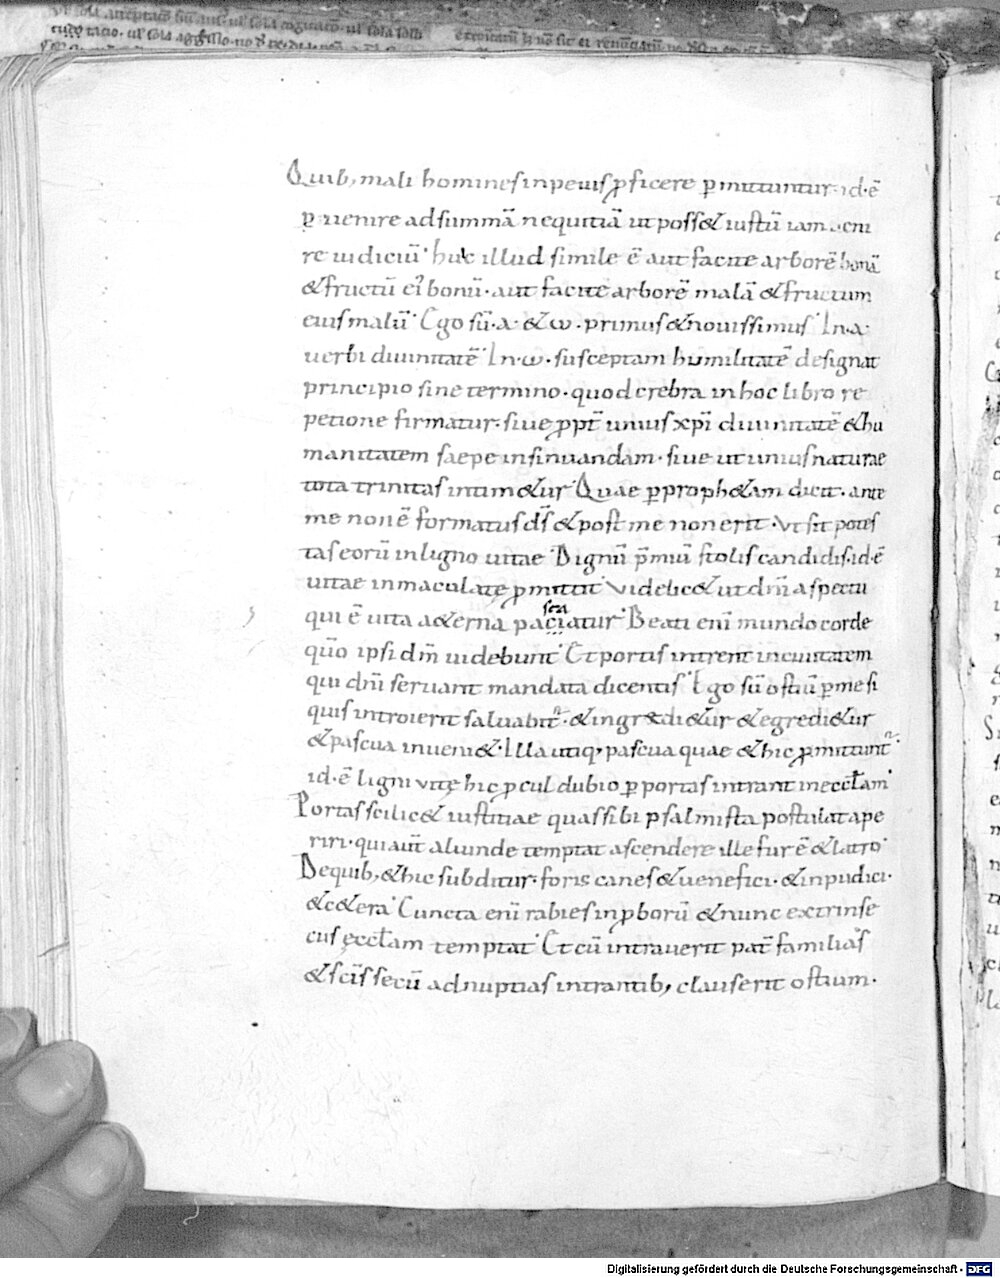 Quib; mali homines inpeuis ꝓficere ꝑmittuntur· id·ē
ꝑuenire ad summā nequitiā ut poss& iustū iam ueni
re iudiciū· huic illud simile ē aut facite arborē bonā
& fructū eiꝰ bonū· aut facite arborē malā & fructum
eius malū· Ego sū·a· & ω· primus & nouissimus· In·a·
uerbi diuinitatē· In·ω· susceptam humilitatē designat
principio sine termino· quod crebra in hoc libro re
petione firmatur· siue ꝓpt̄ unius xp̄i diuinitatē & hu
manitatem saepe insinuandam· siue ut unius naturae
tota trinitas intim&ur· Quae ꝑ proph&am dicit· ante
me non ē formatus d̄s & post me non erit· Vt sit potes
tas eorū in ligno uitae· Dignū p̄miū stolis candidis· id·ē
uitae inmaculatę ꝓmittit· Videlic& ut dn̄i aspectu
qui ē uita a&erna paciatur· Beati eni mundo corde
qūo ipsi dm̄ uidebunt· Et portis intrent in ciuitatem
qui dn̄i seruant mandata dicentis· Ego sū ostiū ꝑ me si
quis introierit saluabit̄· & ingredi&ur & egredi&ur
& pascua inueni&· Illa utiq; pascua quae & hic ꝓmittunt̄·
id·ē ligni vitę hic ꝓcul dubio ꝑ portas intrant in eccl̄am·
Portas scilic& iustitiae quas sibi psalmista postulat ape
riri· qui aūt aliunde temptat ascendere ille fur ē & latro·
De quib; & hic subditur· foris canes & uenefici· & inpudici·
& c&era· Cuncta enī rabies inꝓborū & nunc extrinse
cus ęccl̄am temptat· Et cū intrauerit pat̄ familias
& sc̄is secū ad nuptias intrantib; clauserit ostium·
Digitalisierung gefördert durch die Deutsche Forschungsgemeinschaft - DFG